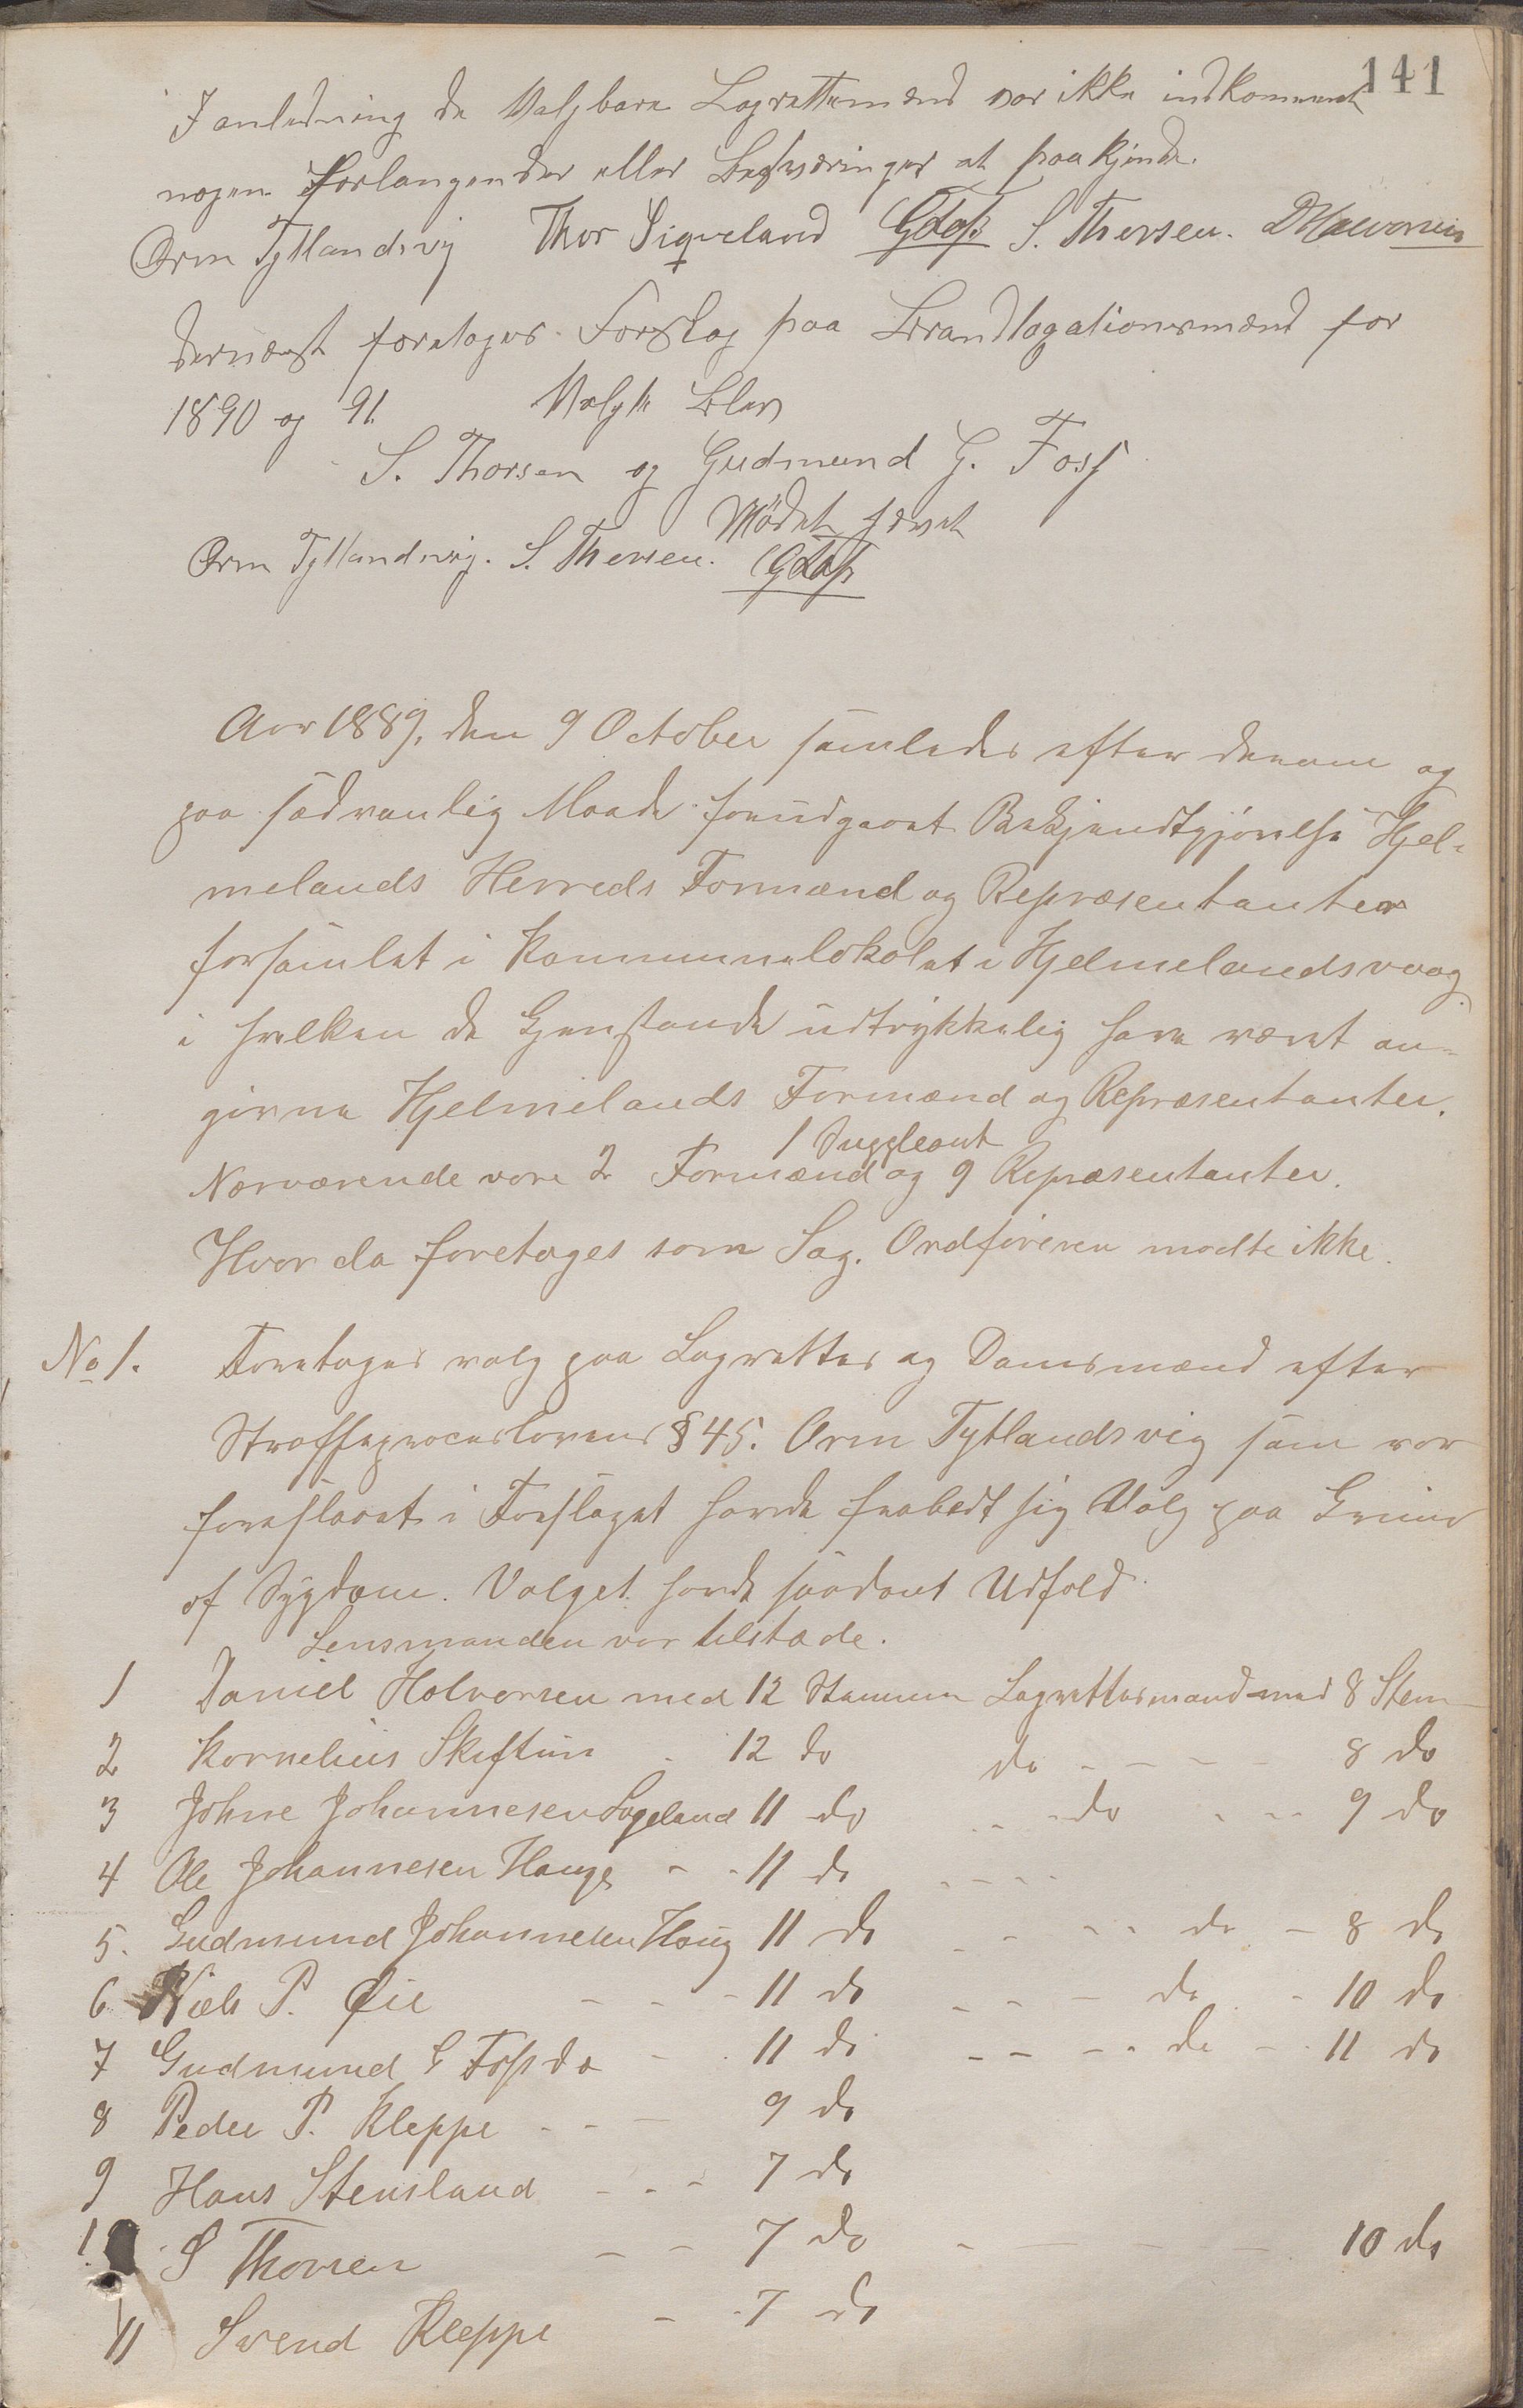 141
I anledning de Valgbare Lagrettemænd var ikke indkommet
nogen Forlangender eller Besværinger at paakjende.
Orm Tytlandsvig Thor Sigveland GFoss S. Thorsen. DHalvorsen
dernæst foretoges Forslag paa Brandtagationsmænd for
1890 og 91. Valgte blev
S. Thorsen og Gudmund G. Foss
Mödet hævet
Orm Tytlandsvig. S. Thorsen. GFoss
Aar 1889, den 9 October samledes efter denne og
paa sædvanlig Maade forudgaaet Bekjendtgjörelse Hjel-
melands Herreds Formænd og Repræsentanter
forsamlet i Kommunelokalet i Hjelmelandsvaag
i hvilken de Gjenstande udtrykkelig have været an-
givne Hjelmelands Formænd og Repræsentanter.
1 Suppleant
Nærværende vare 2 Formænd og 9 Repræsentanter.
Hvor da foretoges som Sag. Ordföreren mødte ikke.
No 1. Foretoges valg paa Lagrettes og Domsmænd efter
Straffeproceslovens § 45. Orm Tytlandsvig som var
foreslaaet i Forslaget havde frabedt sig Valg paa Grund
af Sygdom. Valget havde saadant Udfald.
Lensmanden var tilstede.
1 Daniel Halvorsen med 12 Stemmer Lagrettesmand med 8 Stem
2 Kornelius Skiftun - 12 do do - - - - 8 do
3 Johne Johannesen Lageland 11 do - - do - - - 9 do
4 Ole Johannesen Hauge - - 11 do - - - -
5. Gudmund Johannesen Haug 11 do - - - - do - 8 do
6 Niels P. Øie - - - 11 do - - - do - 10 do
7 Gudmund G Foss do - - 11 do - - - - do - - 11 do
8 Peder P. Kleppe - - - 9 do
9 Hans Stensland - - - 7 do
10 S Thorsen - - 7 do - - - - 10 do
11 Svend Kleppe - - 7 do